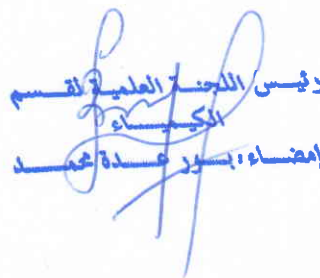 رئيس اللجنة العلمية لقسم
الكيمياء
إمضاء: بور عدة محمد